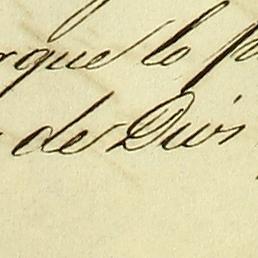 rque lo p
de Dios